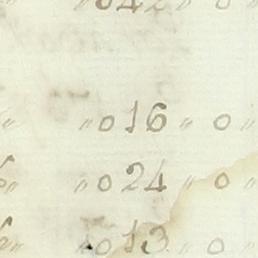 „ 042 „ 0
„ „ 016 „ 0 „
„ „ 024 „ 0 „
„ „ 013 „ 0 „